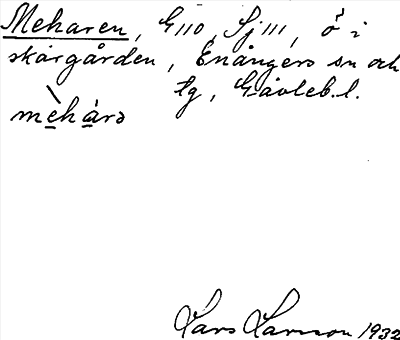 Meharen, G110, Sj111, ö i
skärgården, Enångers sn och
tg, Gävleb.l.
mehárɔ
Lars Larsson 1932